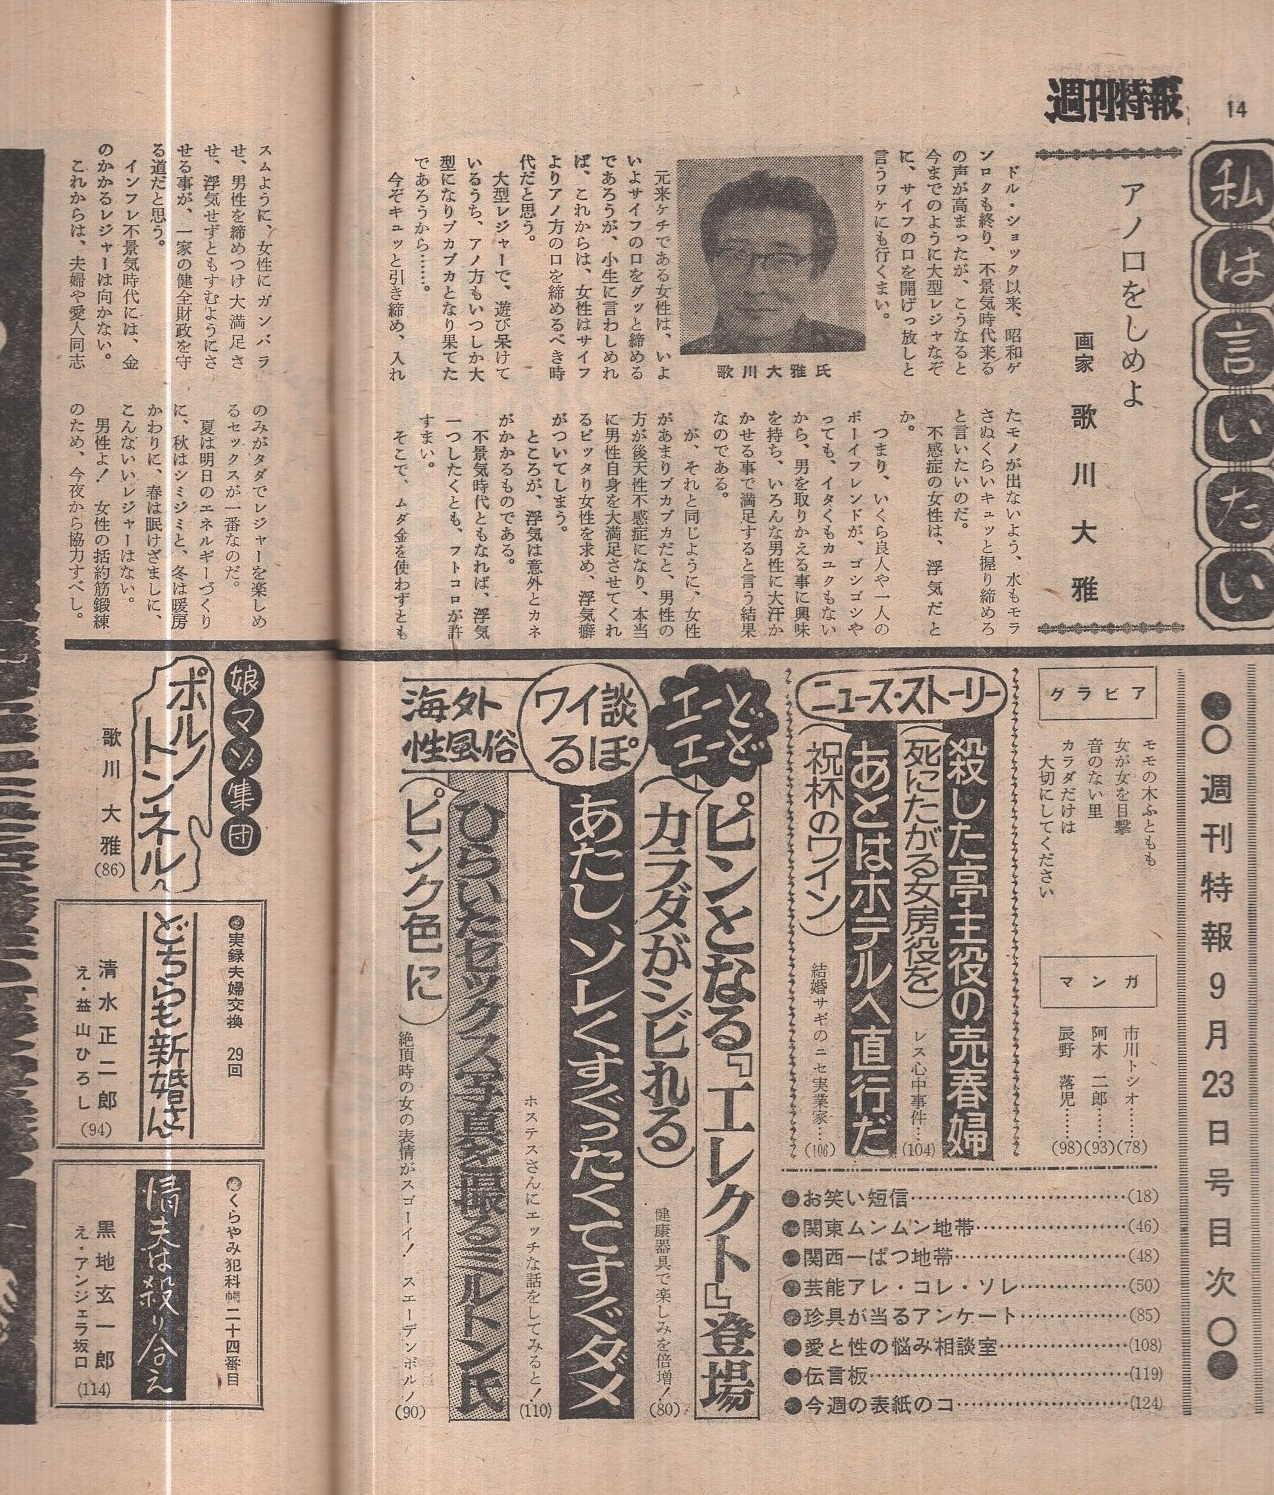 14
週刊特報
私は言いたい
アノ口をしめよ
画家 歌川大雅
ドル・ショック以来、昭和ゲ
ンロクも終り、不景気時代来る
の声が高まったが、こうなると
今までのように大型レジャなぞ
に、サイフの口を開けっ放しと
言うワケにも行くまい。
歌川大雅氏
元来ケチである女性は、いよ
いよサイフの口をグッと締める
であろうが、小生に言わしめれ
ば、これからは、女性はサイフ
よりアノ方の口を締めるべき時
代だと思う。
大型レジャーで、遊び呆けて
いるうち、アノ方もいつしか大
型になりブカブカとなり果てた
であろうから……。
今ぞキュッと引き締め、入れ
たモノが出ないよう、水もモラ
さぬくらいキュッと握り締めろ
と言いたいのだ。
不感症の女性は、浮気だと
か。
つまり、いくら良人や一人の
ボーイフレンドが、ゴシゴシや
っても、イタくもカユクもない
から、男を取りかえる事に興味
を持ち、いろんな男性に大汗か
かせる事で満足すると言う結果
なのである。
が、それと同じように、女性
があまりブカブカだと、男性の
方が後天性不感症になり、本当
に男性自身を大満足させてくれ
るピッタリ女性を求め、浮気癖
がついてしまう。
ところが、浮気は意外とカネ
がかかるものである。
不景気時代ともなれば、浮気
一つしたくとも、フトコロが許
すまい。
そこで、ムダ金を使わずとも
スムように、女性にガンバラ
せ、男性を締めつけ大満足さ
せ、浮気せずともすむようにさ
せる事が、一家の健全財政を守
る道だと思う。
インフレ不景気時代には、金
のかかるレジャーは向かない。
これからは、夫婦や愛人同志
のみがタダでレジャーを楽しめ
るセックスが一番なのだ。
夏は明日のエネルギーづくり
に、秋はシミジミと、冬は暖房
かわりに、春は眠けざましに、
こんないいレジャーはない。
男性よ！ 女性の括約筋鍛練
のため、今夜から協力すべし。
●○週刊特報9月23日号目次○●
グラビア
モモの木ふともも
女が女を目撃
音のない里
カラダだけは
大切にしてください
マンガ
市川トシオ……(78)
阿木二郎……(93)
辰野落児……(98)
ニュース・ストーリー
殺した亭主役の売春婦
(死にたがる女房役を)
レス心中事件…(104)
あとはホテルへ直行だ
(祝杯のワイン)
結婚サギのニセ実業家…(106)
●お笑い短信……(18)
●関東ムンムン地帯……(46)
●関西一ぱつ地帯……(48)
●芸能アレ・コレ・ソレ……(50)
●珍具が当るアンケート……(85)
●愛と性の悩み相談室……(108)
●伝言板……(119)
●今週の表紙のコ……(124)
エーどエーど
ピンとなる『エレクト』登場
(カラダがシビれる)
健康器具で楽しみを倍増！(80)
ワイ談ぽる
あたし、ソレくすぐったくてすぐダメ
ホステスさんにエッチな話をしてみると！(110)
海外性風俗
ひらいたセックス写真を撮るミルトン氏
(ピンク色に)
絶頂時の女の表情がスゴーイ！ スエーデンポルノ(90)
娘マゾ集団
ポルノトンネル
歌川大雅
(86)
実録夫婦交換 29回
どちらも新婚さん
清水正二郎
え・益山ひろし
(94)
くらやみ犯科帳二十四番目
情夫は殺り合え
黒地玄一郎
え・アンジェラ坂口
(114)